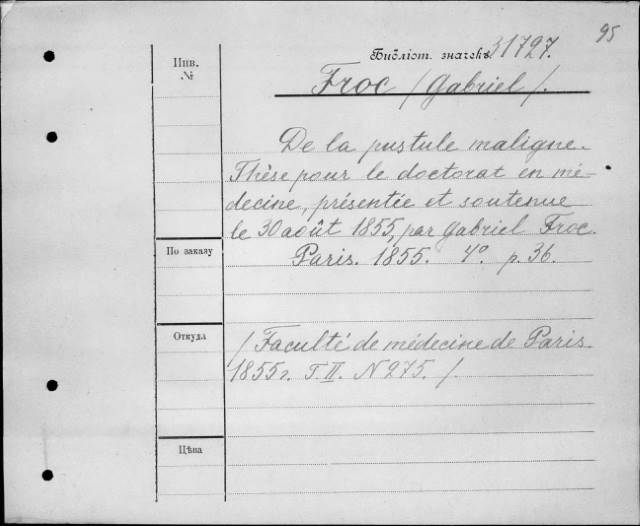 95
Инв.
№
Библіот. значекъ 31797.
Froc / Gabriel /.
De la pustule maligne.
Thèse pour le doctorat en mé-
decine, présentée et soutenue
le 30 août 1855, par Gabriel Froc.
Paris. 1855. 4º. p. 36.
По заказу
Откуда
/ Faculté de médecine de Paris.
1855г. T. II. N 275. /.
Цѣна